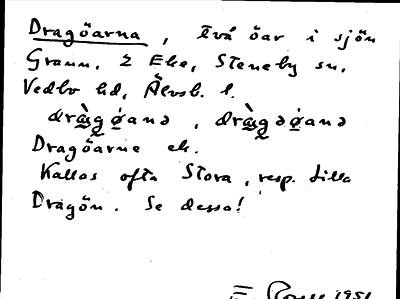 Dragöarna, två öar i sjön
Grann. 2 Eke, Steneby sn,
Vedbo hd, Älvsb. l.
drà̰g ø̣anə, drà̰gəø̣anə
Dragöarne ek.
Kallas ofta Stora, resp. Lilla
Dragön. Se dessa!
1951